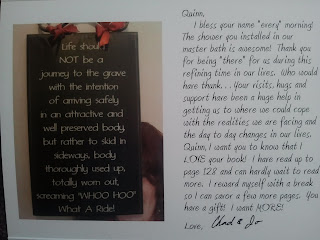 Life should
NOT be a
journey to the grave
with the intention
of arriving safely
in an attractive and
well preserved body,
but rather to skid in
sideways, body
thoroughly used up,
totally worn out,
screaming "WHOO HOO"
What A Ride!
Quinn,
I bless your name "every" morning!
The shower you installed in our
master bath is awesome! Thank you
for being "there" for us during this
refining time in our lives. Who would
have thunk. . . Your visits, hugs and
support have been a huge help in
getting us to where we could cope
with the realities we are facing and
the day to day changes in our lives.
Quinn, I want you to know that I
LOVE your book! I have read up to
page 128 and can hardly wait to read
more. I reward myself with a break
so I can savor a few more pages. You
have a gift! I want MORE!
Love,